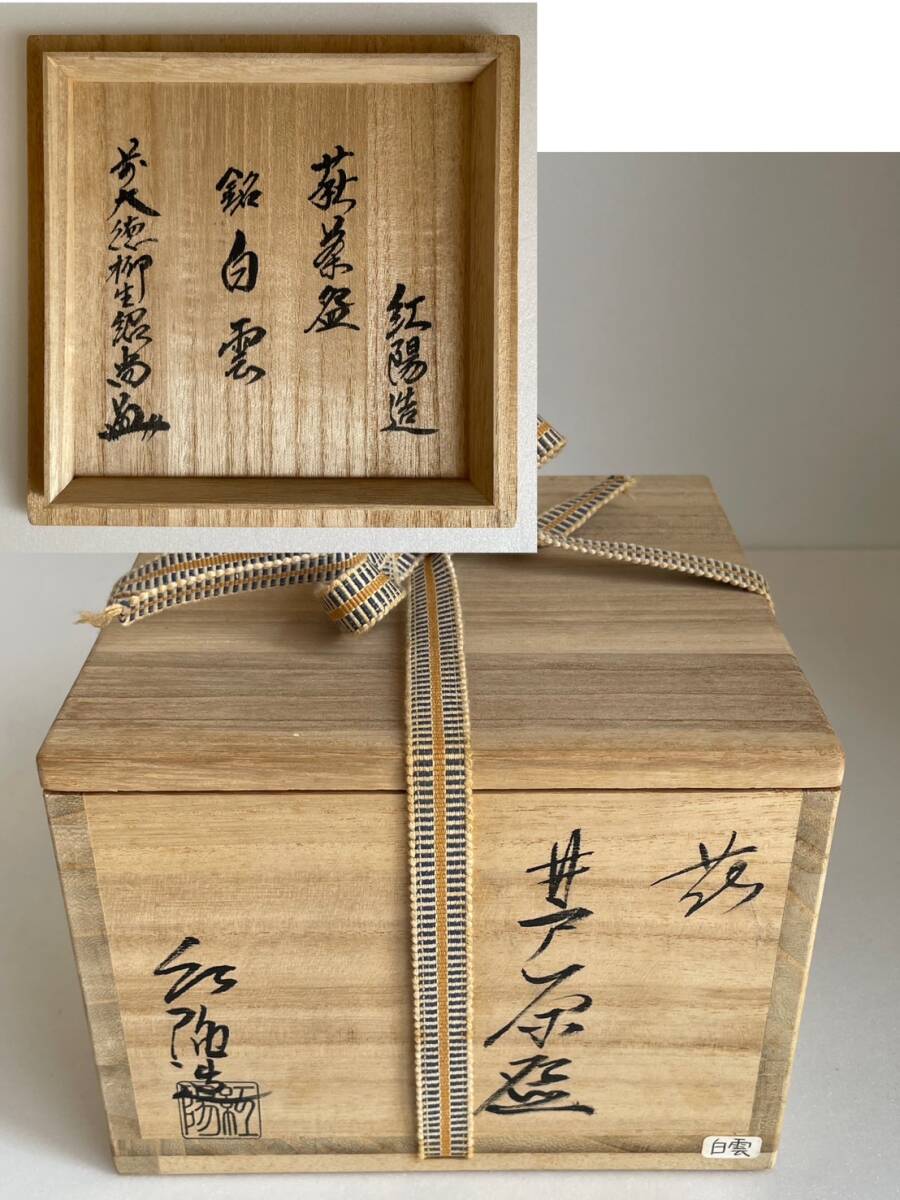 紅陽造
萩茶盌
銘 白雲
前大徳柳生紹尚
萩
井戸茶盌
紅陽造
紅陽
白雲